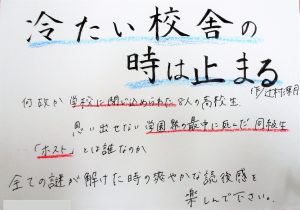 冷たい校舎の
時は止まる
作/辻村深月
何故か学校に閉じ込められた8人の高校生
思い出せない学園祭の最中に死んだ同級生
「ホスト」とは誰なのか
全ての謎が解けた時の爽やかな読後感を
楽しんで下さい。